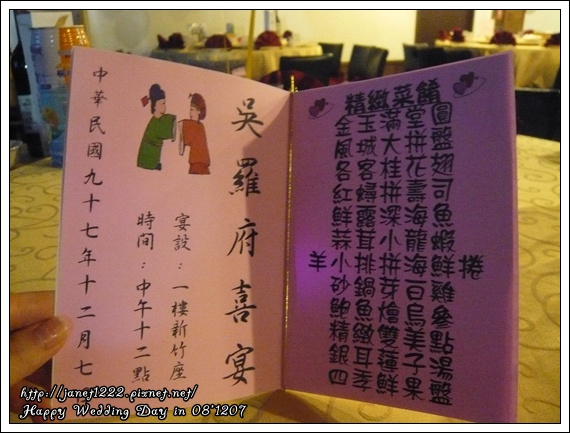 精緻菜餚
金玉滿堂圓
風城大拼盤
各客桂花翅
紅蟳拼壽司
鮮露深海魚
蒜茸小龍蝦
羊小排拼海鮮捲
砂鍋芽百雞
鮑魚燴烏參
精緻雙美點
銀耳蓮子湯
四季鮮果盤
吳羅府喜宴
宴設：一樓新竹座
時間：中午十二點
中華民國九十七年十二月七
http://janet1222.pixnet.net/
Happy Wedding Day in 08'1207